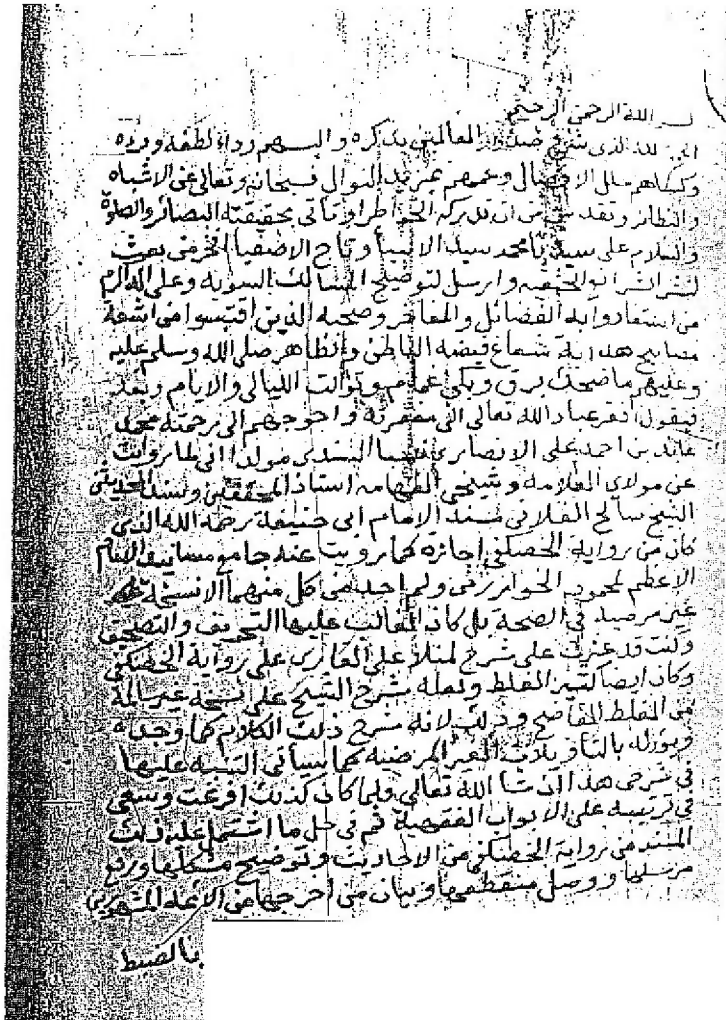 بسم الله الرحمن الرحيم
الحمد لله الذى شرح صدور العالمين بذكره والبسهم رداء لطفه وبره
وكساهم حلل الافضال وعمهم بمزيد النوال فسبحانه وتعالى عن الاشباه
والنظائر وتقدس من ان تدركه الخواطر او تأتى بحقيقته البصائر والصلوة
والسلام على سيدنا محمد سيد الانبيا وتاج الاصفيا الخر من بعث
لنشر الشرائع الحنيفيه وارسل لتوضيح المسالك السويه وعلى اله الكرام
من استعاد وابه الفضائل والمفاخر وصحبه الذين اقتبسوا من اشعة
مصابيح هداية شعاع فيضه الباطن والظاهر صلى الله وسلم عليه
وعليهم ما ضحك برق وبكى غمام وتوالت الليالى والايام وبعد
فيقول افقر عباد الله تعالى الى مغفرته واحوجهم الى رحمته محمد
عابد بن احمد على الانصارى نسبا السندى مولدا انى لما رويت
عن مولاى العلامه وشيخى الفهامه استاذ المحققين وسند المحدثين
الشيخ صالح الفلانى مسند الامام ابى حنيفة رحمه الله الذى
كان من رواية الحصكفى اجازه كما رويت عنه جامع مسانيد الامام
الاعظم لمحمود الخوارزمى ولم اجد من كل منهما الا نسخة
غير مرضيه فى الصحة بل كان الغالب عليها التحريف والتصحيف
وكنت قد عثرت على شرح لمنلا على القارى على رواية الحصكفى
وكان ايضا كثير الغلط ولعله شرح الشيخ على نسخه غير سالمة
من الغلط الفاضح وذلك لانه شرح ذلك الكلام كما وجده
ويؤوله بالتاويلات الغير المرضيه كما سيأتى التنبيه عليها
فى شرحى هذا ان شا الله تعالى فلما كان كذلك افرغت وسعى
فى ترتيبه على الابواب الفقهية ثم فى حل ما اشتمل عليه ذلك
المسند من رواية الحصكفى من الاحاديث وتوضيح مشكلها ورفع
مرسلها ووصل منقطعها وبيان من اخرجها من الائمه المشهورين
بالضبط